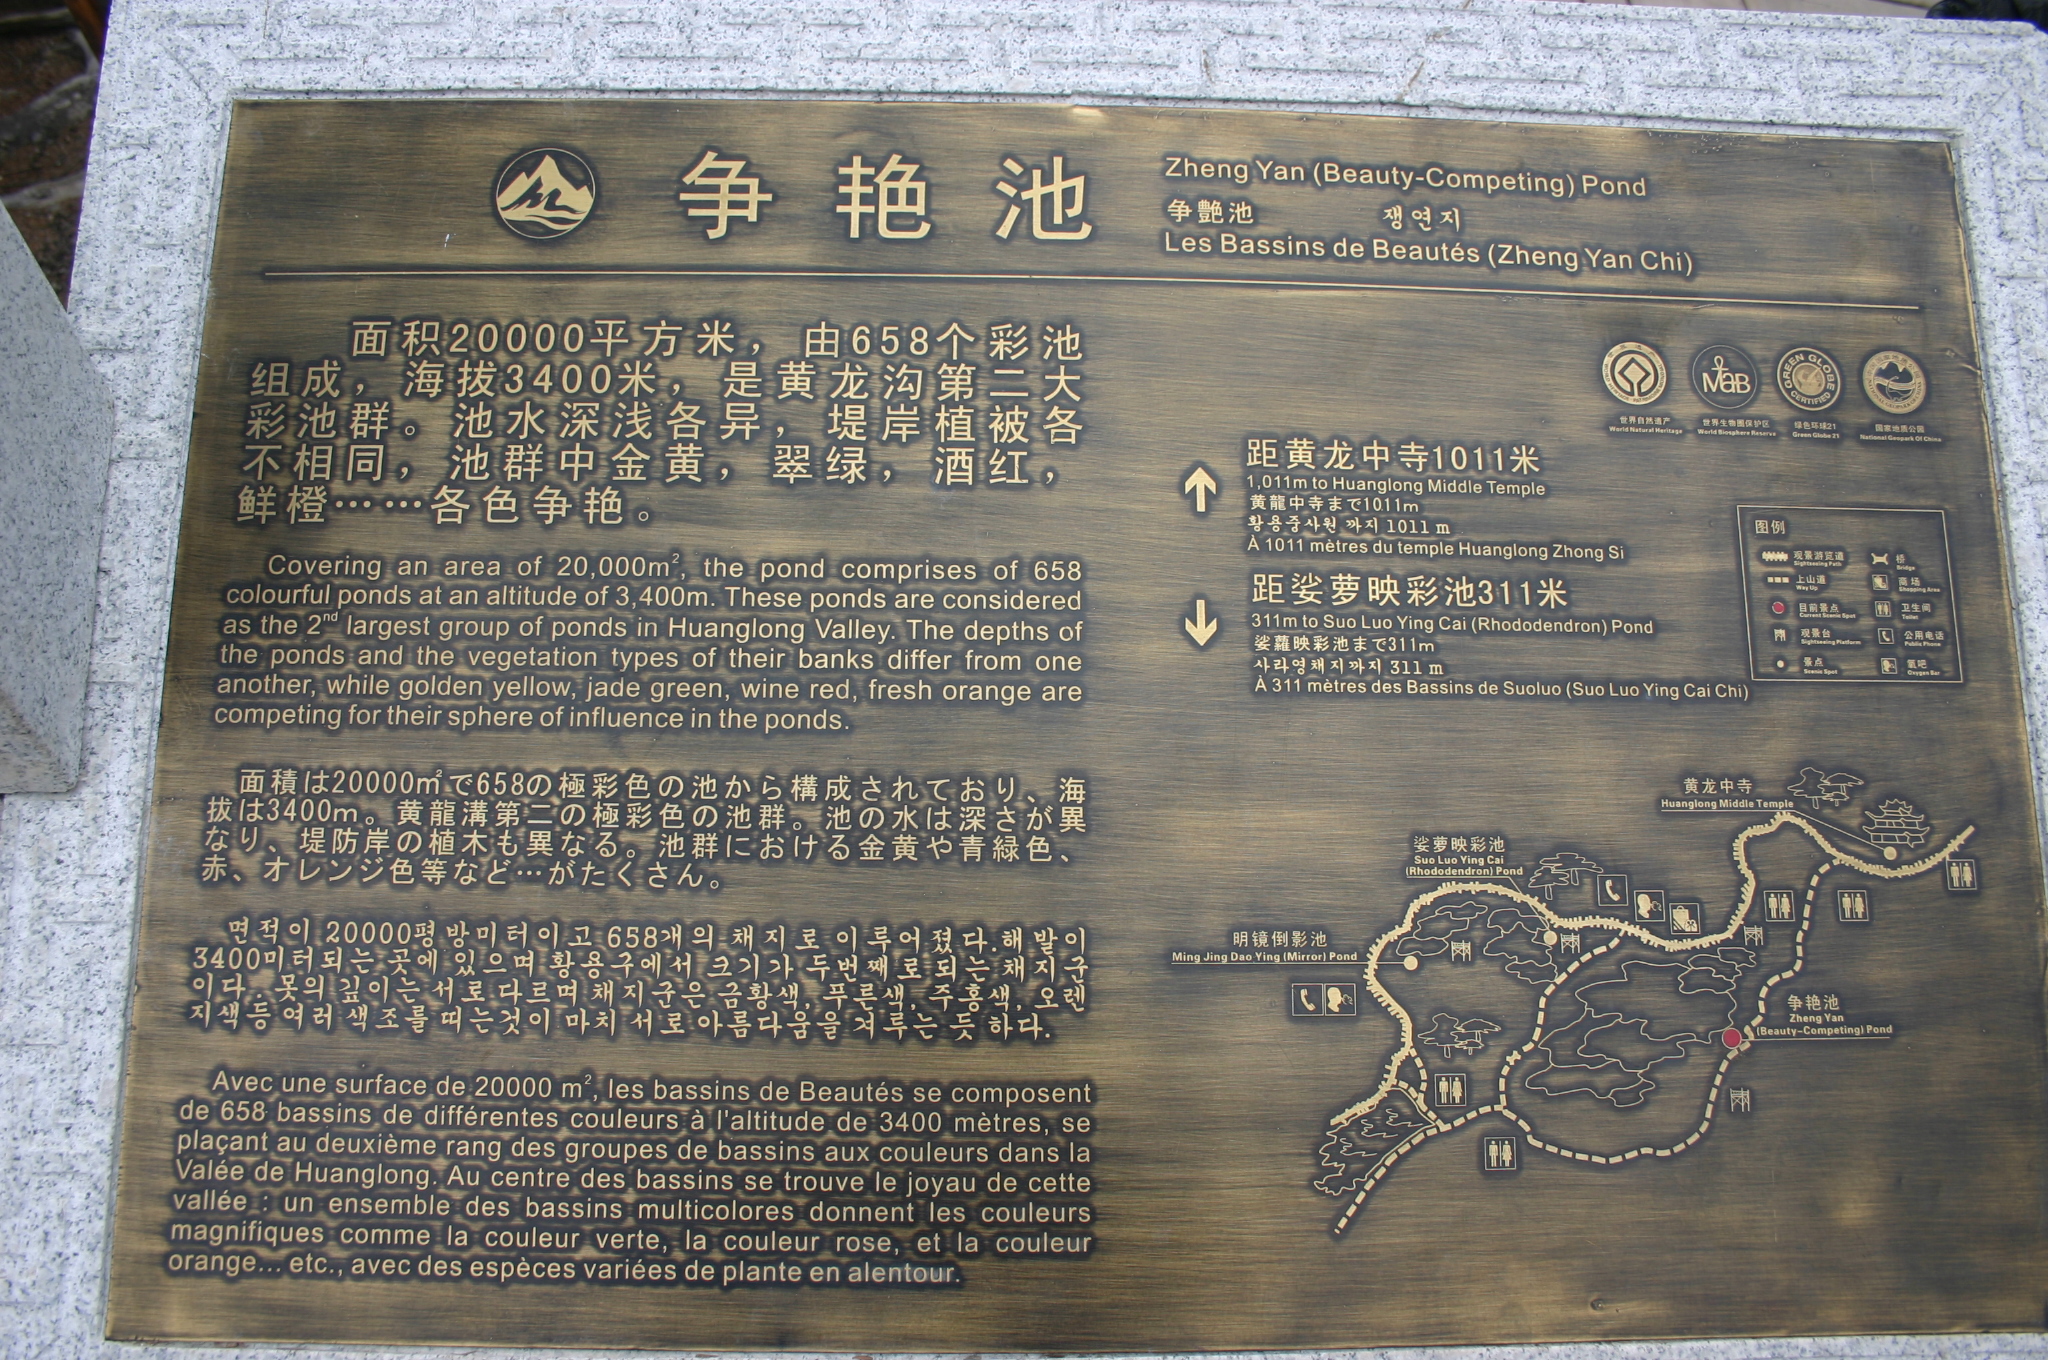 争艳池
Zheng Yan (Beauty-Competing) Pond
争艶池 쟁연지
Les Bassins de Beautés (Zheng Yan Chi)
面积20000平方米，由658个彩池
组成，海拔3400米，是黄龙沟第二大
彩池群。池水深浅各异，堤岸植被各
不相同，池群中金黄，翠绿，酒红，
鲜橙……各色争艳。
Covering an area of 20,000m², the pond comprises of 658
colourful ponds at an altitude of 3,400m. These ponds are considered
as the 2nd largest group of ponds in Huanglong Valley. The depths of
the ponds and the vegetation types of their banks differ from one
another, while golden yellow, jade green, wine red, fresh orange are
competing for their sphere of influence in the ponds.
面積は20000㎡で658の極彩色の池から構成されており、海
拔は3400m。黄龍溝第二の極彩色の池群。池の水は深さが異
なり、堤防岸の植木も異なる。池群における金黄や青緑色、
赤、オレンジ色等など…がたくさん。
면적이 20000평방미터이고 658개의 채지로 이루어졌다.해발이
3400미터되는 곳에 있으며 황용구에서 크기가 두번째로되는 채지군
이다. 못의 깊이는 서로 다르며 채지군은 금황색, 푸른색, 주홍색, 오렌
지색등 여러 색조를 띠는것이 마치 서로 아름다움을 겨루는 듯 하다.
Avec une surface de 20000 m², les bassins de Beautés se composent
de 658 bassins de différentes couleurs à l'altitude de 3400 mètres, se
plaçant au deuxième rang des groupes de bassins aux couleurs dans la
Valée de Huanglong. Au centre des bassins se trouve le joyau de cette
vallée : un ensemble des bassins multicolores donnent les couleurs
magnifiques comme la couleur verte, la couleur rose, et la couleur
orange... etc., avec des espèces variées de plante en alentour.
MaB
GREEN GLOBE
CERTIFIED
世界自然遗产 世界生物圈保护区 绿色环球21 国家地质公园
World Natural Heritage World Biosphere Reserve Green Globe 21 National Geopark Of China
距黄龙中寺1011米
1,011m to Huanglong Middle Temple
黄龍中寺まで1011m
황용중사원 까지 1011 m
À 1011 mètres du temple Huanglong Zhong Si
距娑萝映彩池311米
311m to Suo Luo Ying Cai (Rhododendron) Pond
娑蘿映彩池まで311m
사라영채지까지 311 m
À 311 mètres des Bassins de Suoluo (Suo Luo Ying Cai Chi)
图例
观景游览道 桥
Sightseeing Path Bridge
上山道 商场
Way Up Shopping Area
目前景点 卫生间
Current Scenic Spot Toilet
观景台 公用电话
Sightseeing Platform Public Phone
景点 氧吧
Scenic Spot Oxygen Bar
黄龙中寺
Huanglong Middle Temple
娑萝映彩池
Suo Luo Ying Cai
(Rhododendron) Pond
明镜倒影池
Ming Jing Dao Ying (Mirror) Pond
争艳池
Zheng Yan
(Beauty-Competing) Pond